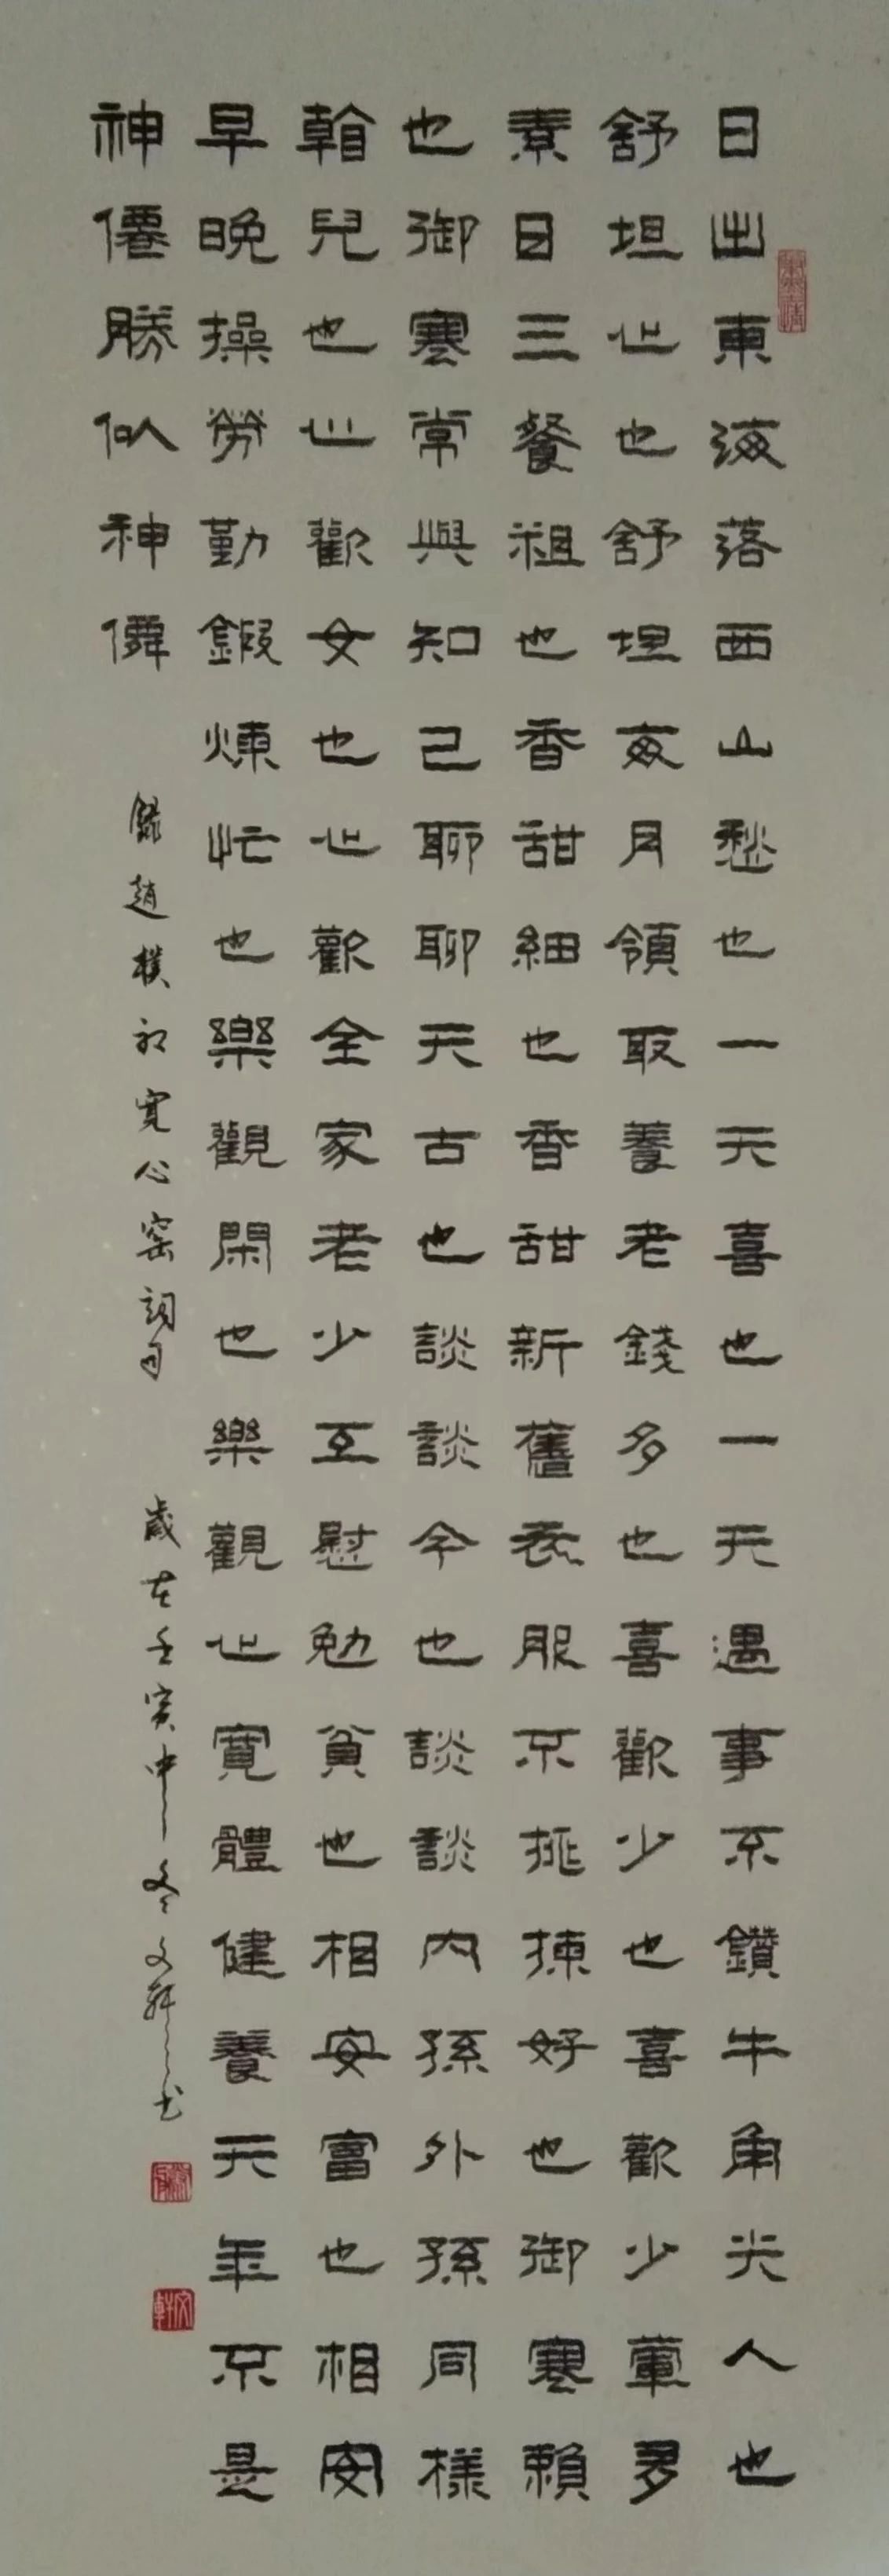 日出東海落西山愁也一天喜也一天遇事不鑽牛角尖人也
舒坦心也舒坦每月領取養老錢多也喜歡少也喜歡少葷多
素日三餐粗也香甜細也香甜新舊衣服不挑揀好也御寒賴
也御寒常與知己聊聊天古也談談今也談談內孫外孫同樣
看兒也心歡女也心歡全家老少互慰勉貧也相安富也相安
早晚操勞勤鍛煉忙也樂觀閑也樂觀心寬體健養天年不是
神僊勝似神僊
錄趙樸初寬心謠詞句
歲在壬寅中冬文軒書
文軒